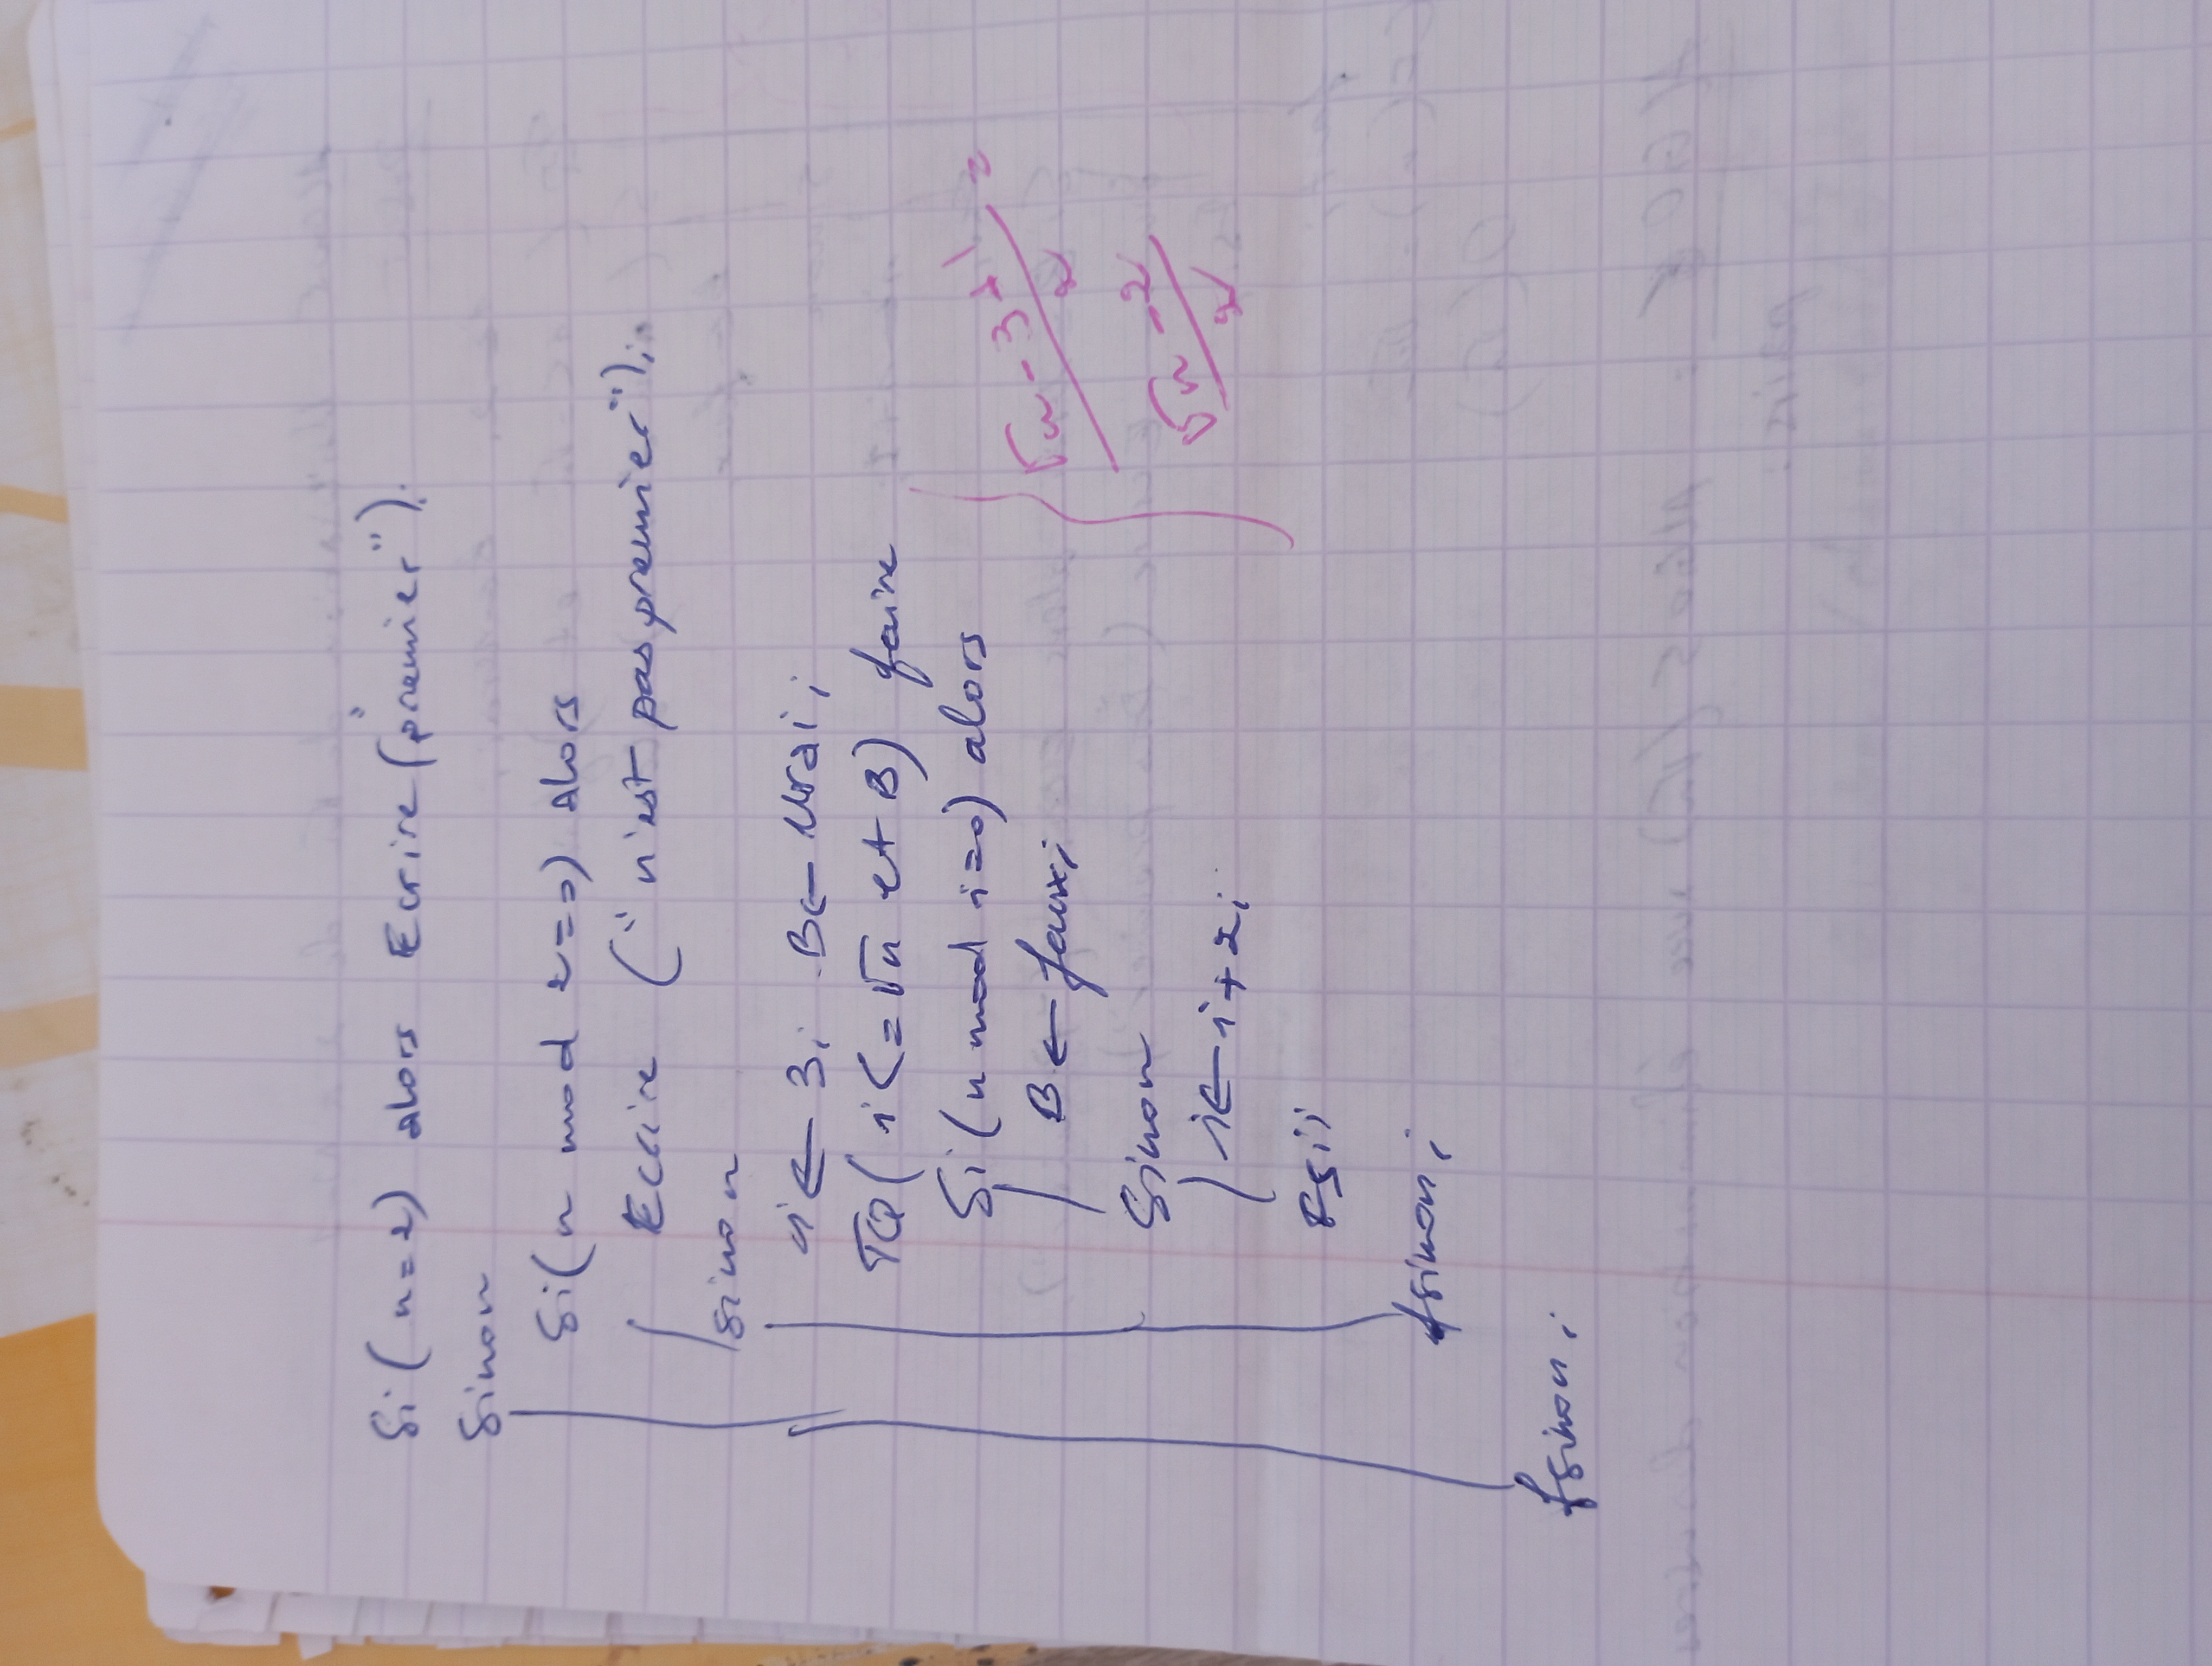 Si ( n=2) alors Ecrire ("premier").
Sinon
Si ( n mod 2=0) alors
Ecrire ("n'est pas premier");
Sinon
i ← 3; B ← Vrai;
TQ ( i <= √n et B) faire
Si ( n mod i=0) alors
B ← faux;
Sinon
i ← i+2;
Fsi;
fsinon;
fsinon;
√n-3
2
+1
=
√n-2
2